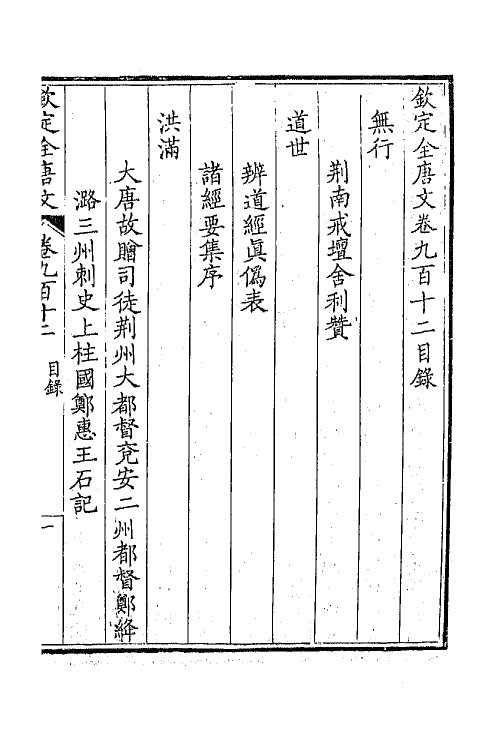 欽定全唐文卷九百十二目錄
無行
荆南戒壇舍利贊
道世
辨道經眞偽表
諸經要集序
洪滿
大唐故贈司徒荆州大都督兗安二州都督鄭絳
潞三州刺史上柱國鄭惠王石記
欽定全唐文 卷九百十二 目錄 一